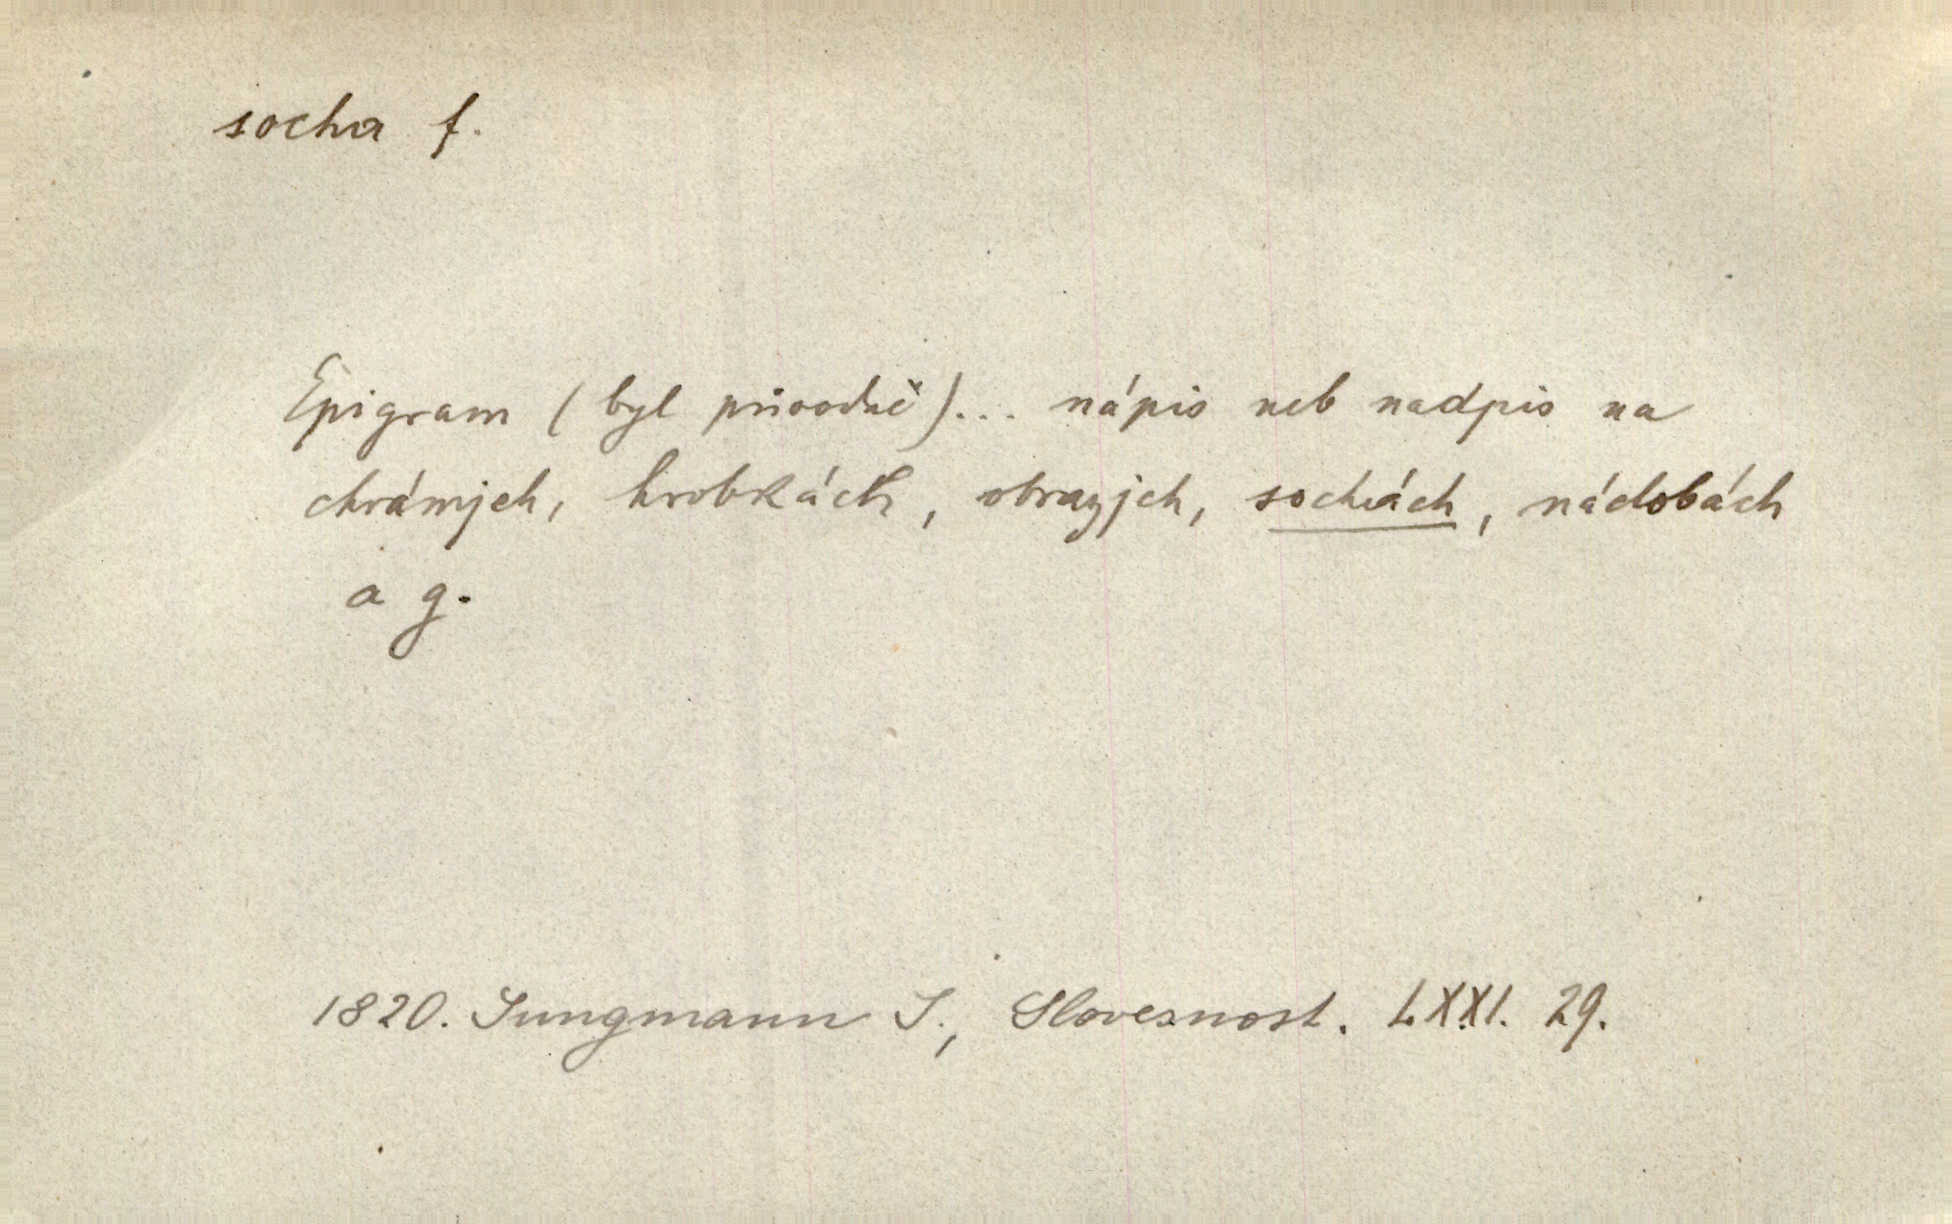 socha f.
Epigram (byl původně)... nápis neb nadpis na
chrámjch, hrobkách, obrazjch, sochách, nádobách
a g.
1820. Jungmann J., Slovesnost. LXXI. 29.